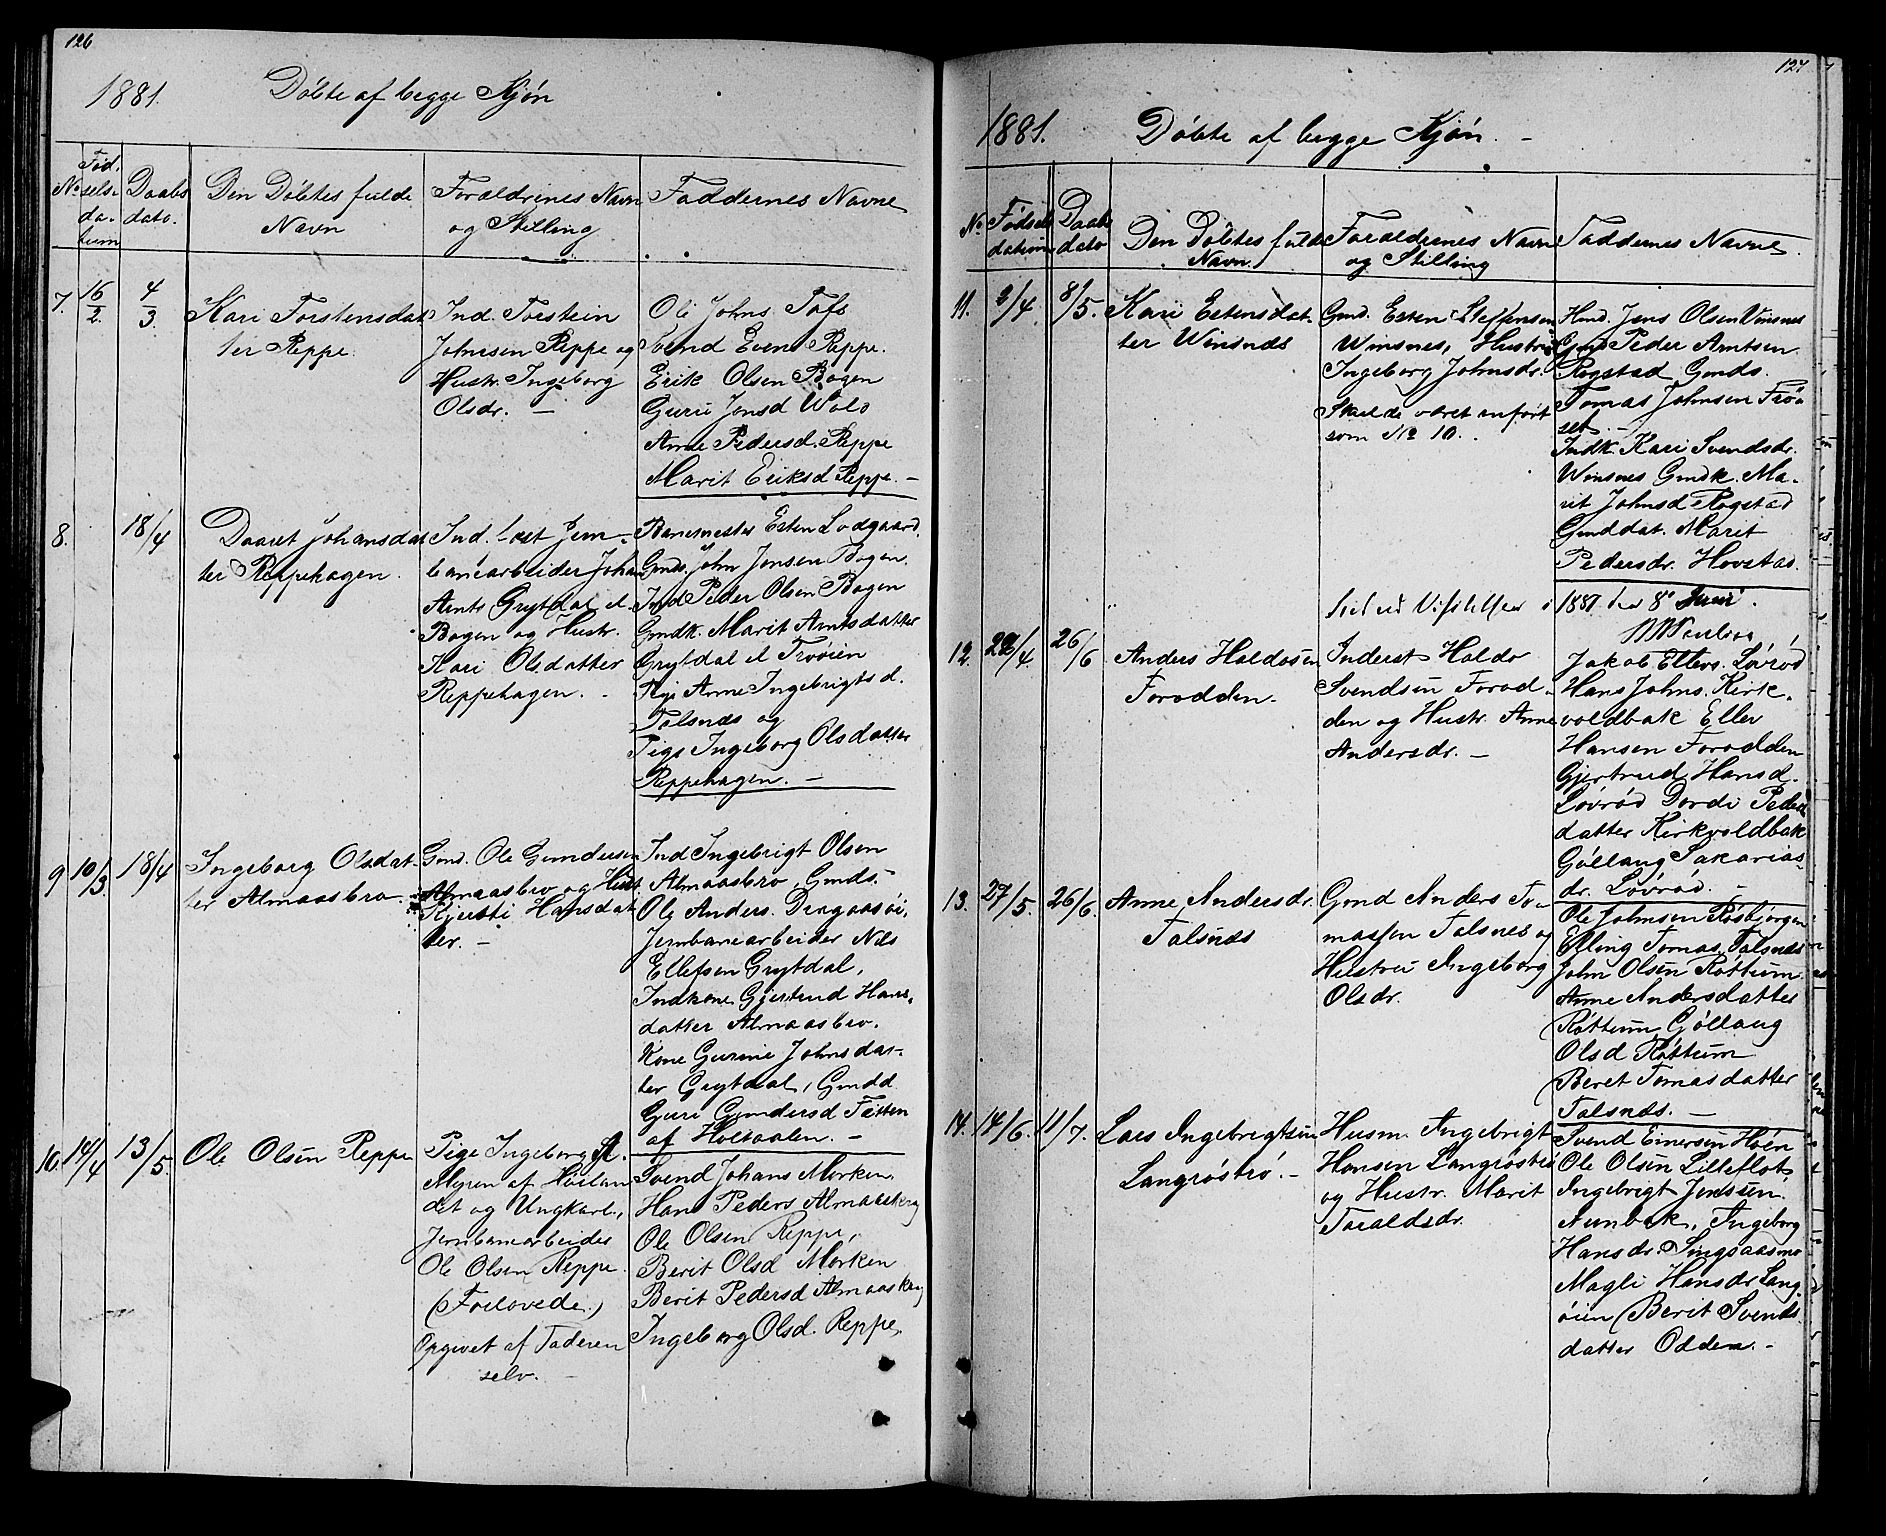 126
1881.
Døbte af begge Kjøn
No
Fød-
sels-
da-
tum
Daabs
dato.
Den Døbtes fulde
Navn
Forældrenes Navn
og Stilling
Faddernes Navne
7.
16/2.
4/3
Kari Torstensdat
ter Reppe
Ind. Torstein
Johnsen Reppe og
Hustr. Ingeborg
Olsdr. –
Ole Johns
Svend Evens Reppe.
Erik Olsen Bogen
Guru Jonsd Wold
Anne Pedersd. Reppe
Marit Eriksd Reppe. –
8.
18/4
Daaret Johansdat
ter Reppehagen.
Ind. Jern-
banearbeider Johan
Arnts Grytdal el.
Bogen og Hustr.
Kari Olsdatter
Reppehagen. –
Banemester Esten Lodgaard.
Gmds. John Jensen Bogen.
Ind Peder Olsen Bogen
Gmdk. Marit Arntsdatter
Grytdal el Trøøien
Pige Anne Ingebrigtsd.
Talsnæs og
Pige Ingeborg Olsdatter
Reppehagen. –
9
10/3.
18/4
Ingeborg Olsdat-
ter Almaasbro.
Gmd. Ole Gundersen
Almaasbro og Hust.
Kjersti Hansdat
ter. –
Ind Ingebrigt Olsen
Almaasbro, Gmds.
Ole Anders. Dragaasøi,
Jernbanearbeider Nils
Ellefsen Grytdal,
Indkone Gjertrud Hans-
datter Almaasbro.
Kone Gurine Johnsdat-
ter Grytdal, Gmdd
Guri Gundersd Tætten
af Holtaalen. –
10.
14/4
13/5
Ole Olsen Reppe
Pige Ingeborg
Myren af
det og Ungkarl,
Jernbanearbeider
Ole Olsen Reppe.
(Forlovede.)
Opgivet af Faderen
selv. –
Svend Johans Morken.
Hans Peders Almaaskrog
Ole Olsen Reppe,
Berit Olsd Morken
Berit Pedersd Almaaskrog
Ingeborg Olsd. Reppe,
127
1881.
Døbte af begge Kjøn. –
No
Fødsels
datum
Daabs
dato
Den Døbtes fulde
Navn.
Forældrenes Navn
og Stilling
Faddernes Navne
11.
2/4.
8/5.
Kari Estensdat-
ter Winsnæs
Gmd. Esten Steffensen
Winsnes, Hustru
Ingeborg Johnsdr.
Skulde været anført
som No 10.
Hmd. Jens Olsen Vinsnes
Gmd Peder Arntsen
Rogstad Gmds.
Tomas Johnsen Trøø
set. –
Indk Kari Svendsdr.
Winsnes Gmdk. Ma-
rit Johnsd Rogstad
Gmddat. Marit
Pedersdr. Hovstad.
1881 den 8
12.
22/4
26/6
Anders Haldosen
Forodden.
Inderst Haldo
Svendsen Forod-
den og Hustr. Anne
Andersdr. –
Jakob Ellevs. Løvrød
Hans Johns. Kirk-
voldbak Eller
Hansen Forodden
Gjertrud Hansd.
Løvrød Dordi Peders
datter Kirkvoldbak
Gøllaug Sakarias-
dr. Løvrød. –
13.
27/5.
26/6.
Anne Andersdr.
Talsnæs
Gmd Anders To-
massen Talsnes og
Hustru Ingeborg
Olsdr.
Ole Johnsen Røsbjørgen
Elling Tomas. Talsnæs
John Olsen Røttum.
Anne Andersdatter
Røttum Gøllaug
Olsd Røttum
Beret Tomasdatter
Talsnæs. –
14.
14/6.
11/7.
Lars Ingebrigtsen
Langrøstrø. –
Husm. Ingebrigt
Hansen Langrøstrø
og Hustr. Marit
Toraldsdr.
Svend Einersen Hoen
Ole Olsen Lilleflot
Ingebrigt Jenssen
Aunbak, Ingeborg
Hansdr. Singsaasmo
Magli Hansdr Lang
øien Berit Svends
datter Odden. –